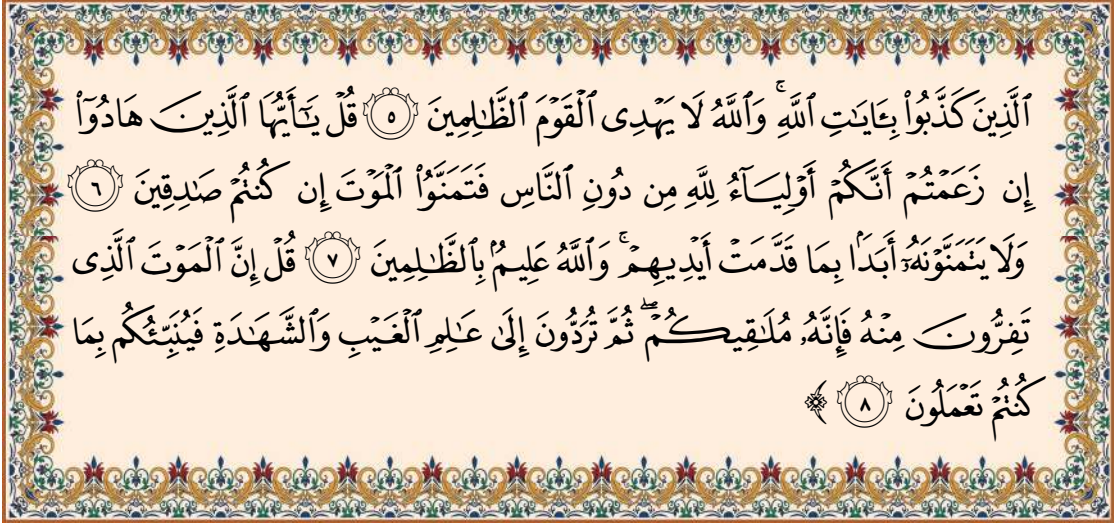 ٱلَّذِينَ كَذَّبُوا۟ بِـَٔايَـٰتِ ٱللَّهِ ۚ وَٱللَّهُ لَا يَهْدِى ٱلْقَوْمَ ٱلظَّـٰلِمِينَ ٥ قُلْ يَـٰٓأَيُّهَا ٱلَّذِينَ هَادُوٓا۟
إِن زَعَمْتُمْ أَنَّكُمْ أَوْلِيَآءُ لِلَّهِ مِن دُونِ ٱلنَّاسِ فَتَمَنَّوُا۟ ٱلْمَوْتَ إِن كُنتُمْ صَـٰدِقِينَ ٦
وَلَا يَتَمَنَّوْنَهُۥٓ أَبَدًۢا بِمَا قَدَّمَتْ أَيْدِيهِمْ ۚ وَٱللَّهُ عَلِيمٌۢ بِٱلظَّـٰلِمِينَ ٧ قُلْ إِنَّ ٱلْمَوْتَ ٱلَّذِى
تَفِرُّونَ مِنْهُ فَإِنَّهُۥ مُلَـٰقِيكُمْ ۖ ثُمَّ تُرَدُّونَ إِلَىٰ عَـٰلِمِ ٱلْغَيْبِ وَٱلشَّهَـٰدَةِ فَيُنَبِّئُكُم بِمَا
كُنتُمْ تَعْمَلُونَ ٨ ﴾